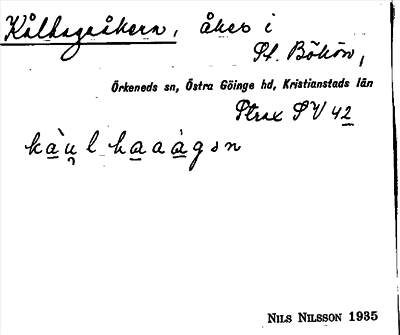 Kålhagaåkern, åker i
St. Bökön,
Örkeneds sn, Östra Göinge hd, Kristianstads län
SV 42
kàu̯l haaàgən
NILS NILSSON 1935